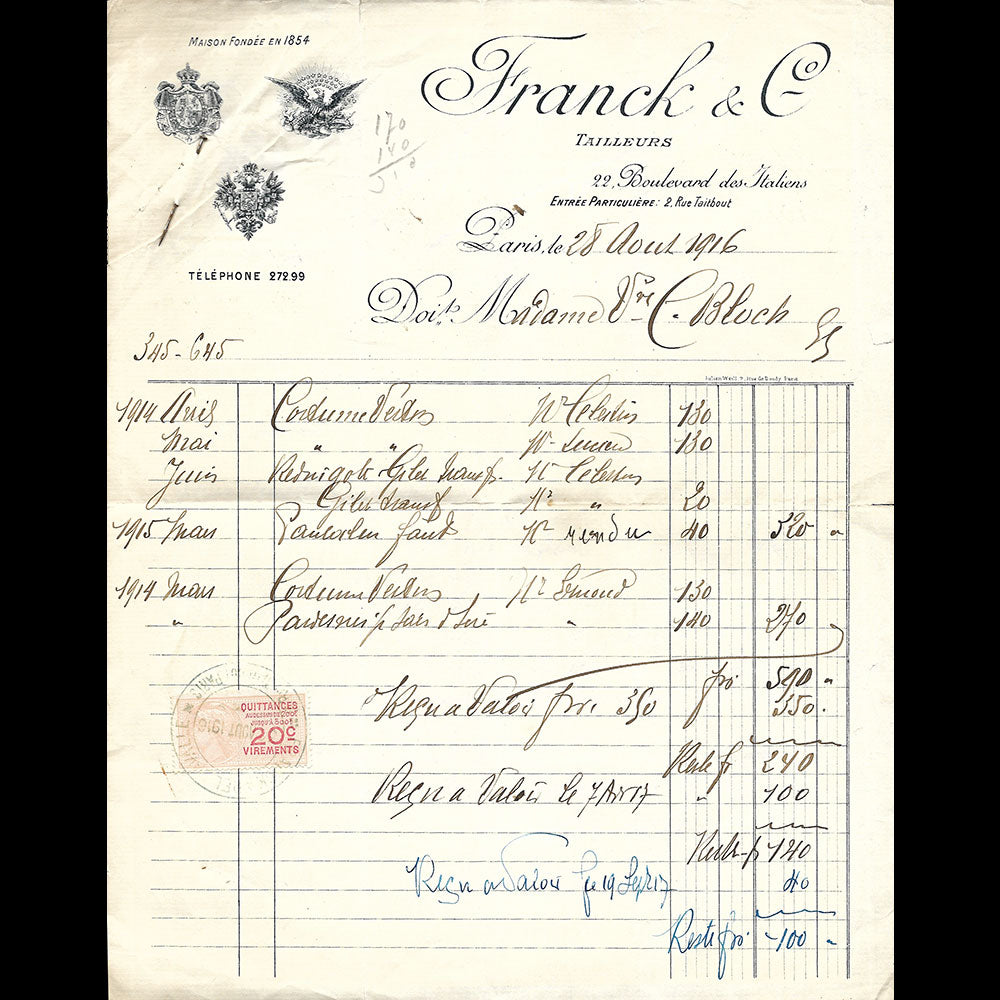 MAISON FONDÉE EN 1854
Franck & Co
TAILLEURS
22, Boulevard des Italiens
ENTRÉE PARTICULIÈRE: 2, Rue Taitbout
170
140
TÉLÉPHONE 272.99
Paris, le 28 Aout 1916
Doit Madame Vve C. Bloch
345-645
1914 Avril Costume Veston Mr Celestin 130
Mai " " Mr 130
Juin Redingote Gilet transf. Mr Celestin
Gilet transf Mr " 20
1915 Mars Pantalon fant Mr 40 320 "
1914 Mars Costume Veston Mr 130
" Pardessus " 140 270 "
frs 590 "
Reçu a Valoir frs. 350 350.
QUITTANCES
20c
VIREMENTS
Reste fr 240
Reçu a Valoir le 7 Avr 17 " 100
Reste fr 140
Reçu a Valoir le 19 Sept 17 40
Reste frs 100 "